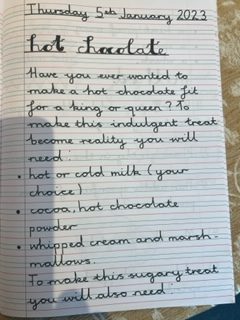 Thursday 5th January 2023
hot chocolate
Have you ever wanted to
make a hot chocolate fit
for a king or queen? To
make this indulgent treat
become reality you will
need:
• hot or cold milk (your
choice)
• cocoa, hot chocolate
powder
• whipped cream and marsh-
mallows.
To make this sugary treat
you will also need: